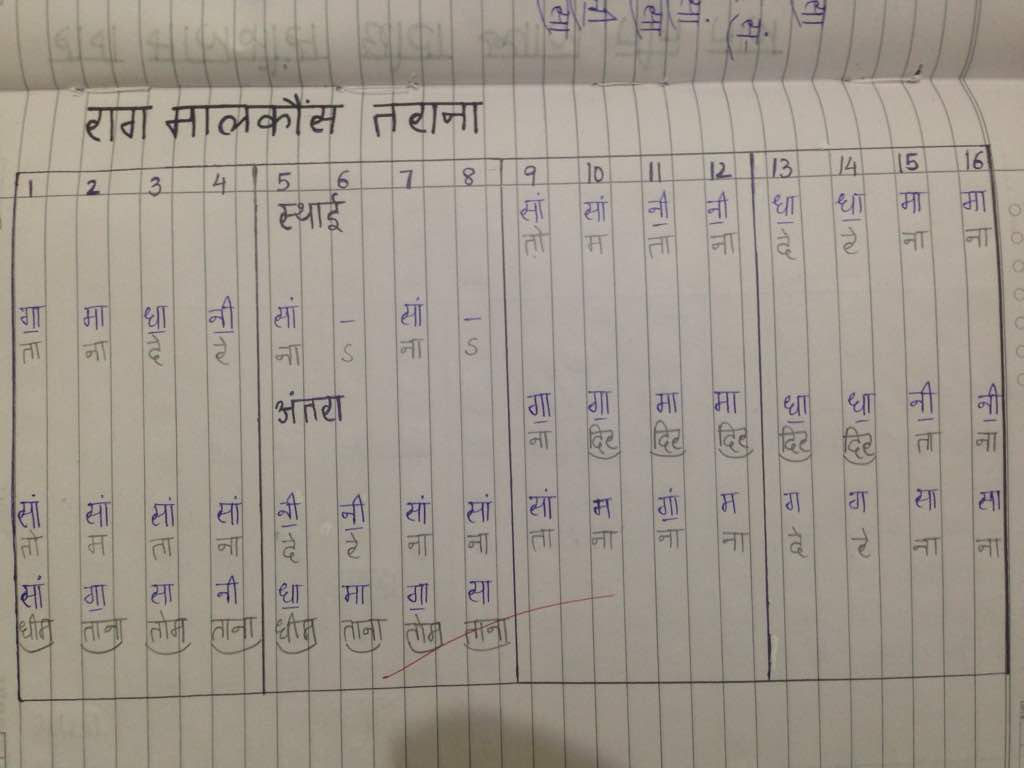 राग मालकौंस तराना
1 2 3 4 5 6 7 8 9 10 11 12 13 14 15 16
स्थाई
सां सां नी॒ नी॒ धा॒ धा॒ मा मा
तो म ता ना दे रे ना ना
गा॒ मा धा॒ नी॒ सां – सां –
ता ना दे रे ना ऽ ना ऽ
अंतरा
गा॒ गा॒ मा मा धा॒ धा॒ नी॒ नी॒
ना दिर दिर दिर दिर दिर ता ना
सां सां सां सां नी॒ नी॒ सां सां सां म गां॒ म ग ग सा सा
तो म ता ना दे रे ना ना ता ना ना ना दे रे ना ना
सां गा॒ सा नी धा॒ मा गा॒ सा
धीम ताना तोम ताना धीम ताना तोम ताना